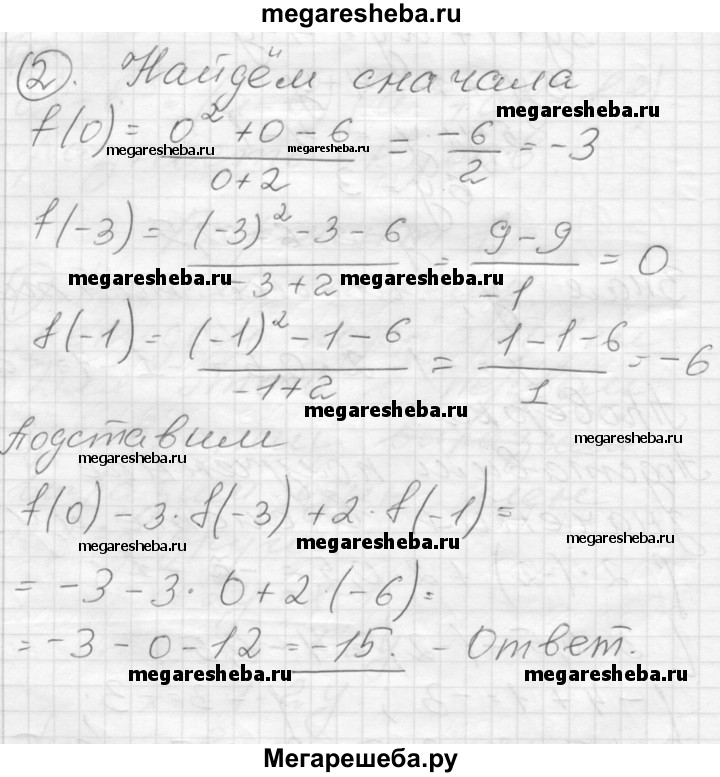 megaresheba.ru
2. Найдём сначала
megaresheba.ru
f(0) = (0² + 0 - 6)/(0+2) = -6/2 = -3
megaresheba.ru megaresheba.ru
f(-3) = ((-3)² - 3 - 6)/(-3+2) = (9-9)/(-1) = 0
megaresheba.ru megaresheba.ru
f(-1) = ((-1)² - 1 - 6)/(-1+2) = (1-1-6)/1 = -6
megaresheba.ru
Подставим
megaresheba.ru
megaresheba.ru
f(0) - 3·f(-3) + 2·f(-1) =
megaresheba.ru megaresheba.ru megaresheba.ru
= -3 - 3·0 + 2·(-6) =
= -3 - 0 - 12 = -15. - Ответ.
megaresheba.ru megaresheba.ru
Мегарешеба.ру